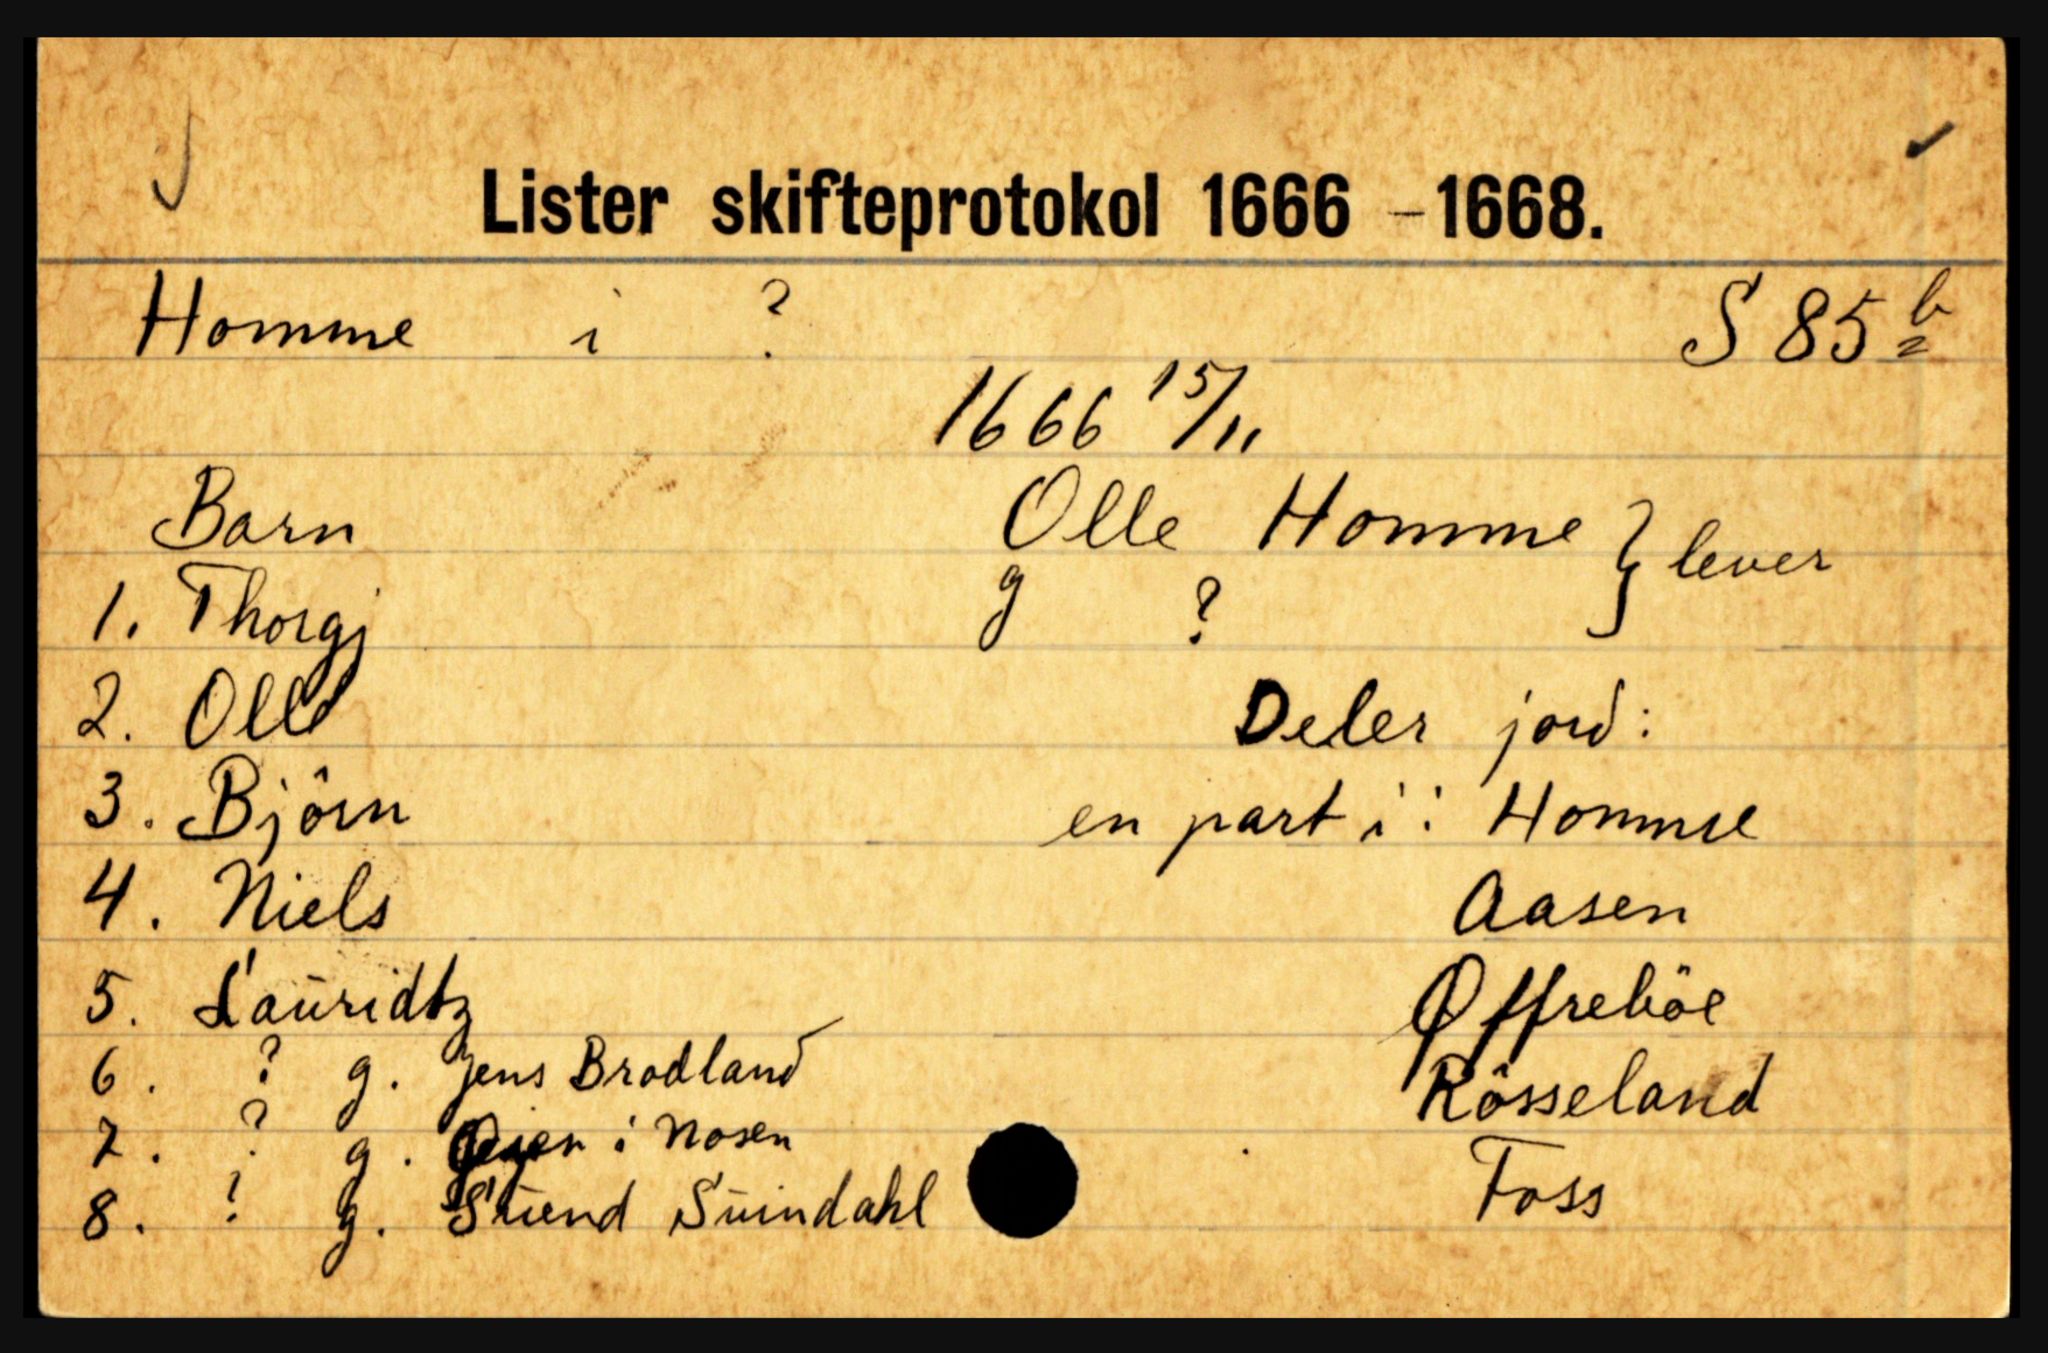 Lister skifteprotokol 1666 - 1668.
Homme i ? S 85 b
1666 15/11
Barn Olle Homme } lever
1. Thorgj g ?
2. Olle Deler jord:
3. Björn en part i: Homme
4. Niels Aasen
5. Lauridtz Øffreböe
6. ? g. Jens Brodland Rösseland
7. ? g. i Nosen Foss
8. ? g. Suend Suindahl